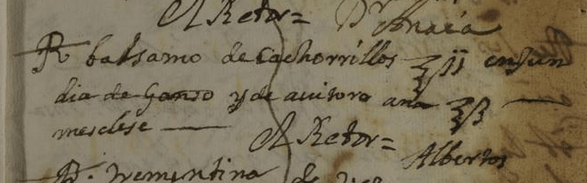 Al Retor=
R balsamo de cachorrillos ℥ ij enjun
dia de Ganso y de avitoro ana ℥ ß
mesclese
Al Retor= Albertos
R. trementina de